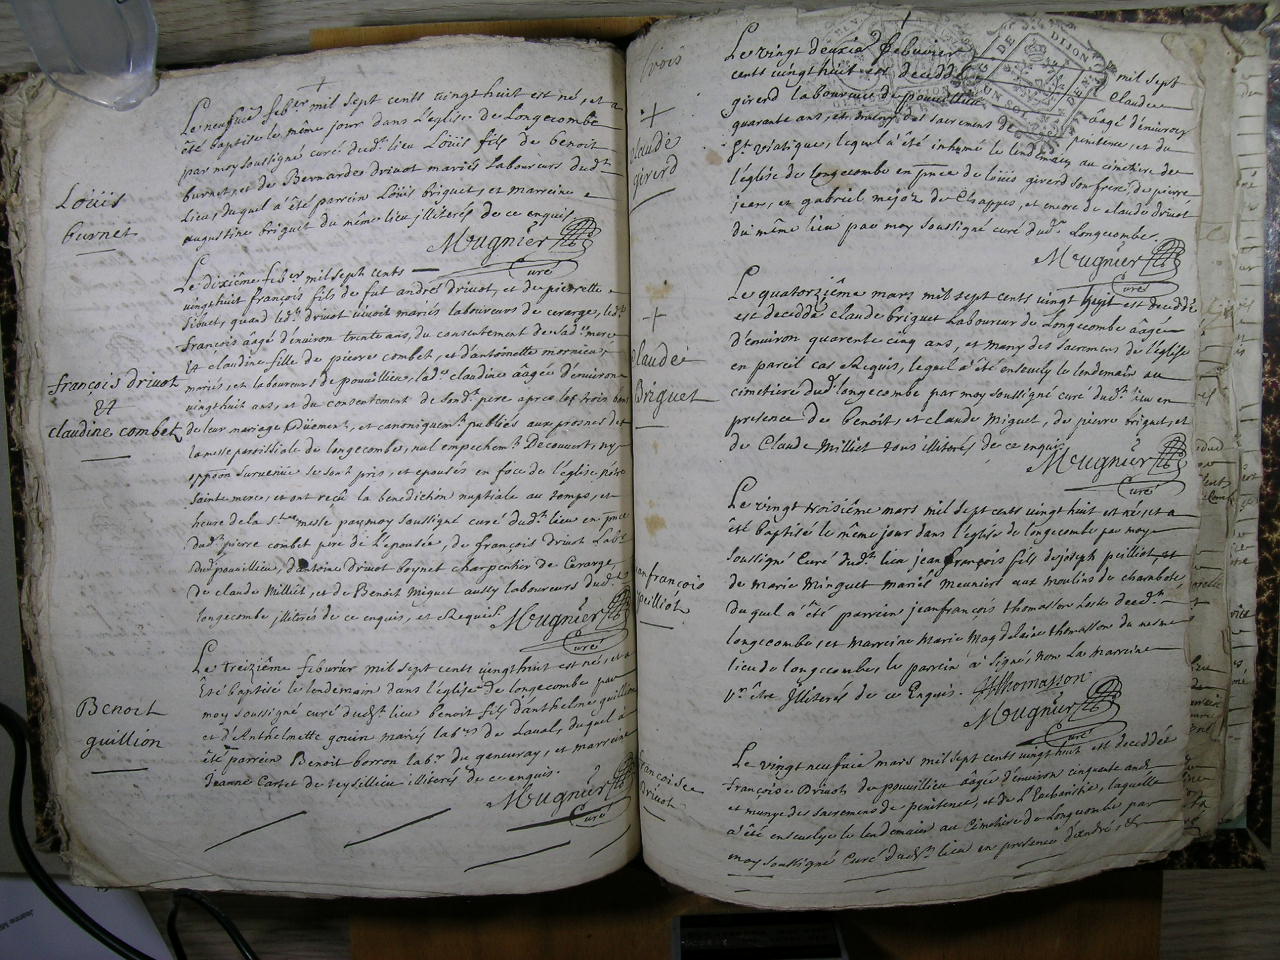 Louis
burnet
Le neufvie feber mil sept cents vingthuit est né, et a
été baptisé le même jour dans l'eglise de Longecombe
par moy soussigné curé dud. lieu Louis fils de benoit
burnet, et de Bernardes drivot mariés Laboureurs dudt
Lieu, duquel a été parrein Loüis briguet, et marreine
augustine briguet du même lieu illiterés de ce enquis
Meugnier
Curé
françois drivot
et
claudine combet
Le dixiême feber mil sept cents
vingthuit françois fils de fut andré drivot, et de pierrette
Sibuet, quand led. drivot vivoit mariés laboureurs de cerarge, led.
françois aagé d'environ trente ans, du consentement de sad. mere
Et claudine fille de pierre combet, et d'antoinette mornieu,
mariés, et laboureurs de pouvillieu, lad. claudine aagée d'environ
vingthuit ans, et du consentement de sond. pere apres les trois bans
de leur mariage Düement, et canoniquemt. publiés aux prosnes de
la messe parroissiale de longecombe, nul empechemt. Decouvert, ny
oppon survenüe se sont pris, et epousés en face de l'église, nôtre
sainte mere, et ont reçû la benediction nuptiale au temps, et
heure de la ste. messe par moy soussigné curé dud. lieu en pnce
dud. pierre combet pere de L'epousée, de françois drivot Labr.
Dud. pouvillieu, d'antoine drivot boynet charpentier de Cerarge,
de claude Milliet, et de Benoit Miguet aussy laboureurs dud.
longecombe, illiterés de ce enquis, et Requis.
Meugnier
Curé
Benoit
guillion
Le treiziême febvrier mil sept cents vingthuit est né, et a
Eté baptisé le lendemain dans l'église de longecombe par
moy soussigné curé dudt. lieu benoit fils d'anthelme guillion
et d'Anthelmette gouin mariés labrs. de Laval, duquel a
été parrein Benoit borron labr. du genevray, et marreine
Jeanne Cartet de Seyssillieu illiterés de ce enquis.
Meugnier
Curé
trois
DIJON
UN SOL
claude
girerd
Le vingt deuxie febuvier mil sept
cents vingthuit est deceddé Claude
girerd laboureur de pouvillieu aâgé d'environ
quarante ans, et muny des sacremens de penitence, et du
St. viatique, lequel a été inhumé le lendemain au cimitiere de
l'église de longecombe en pnce de loüis girerd son frere, de pierre
jean, et gabriel mejoz de Chappes, et encore de claude drivot
du même lieu par moy soussigné curé dud. Longecombe
Meugnier
Curé
claude
Briguet
Le quatorziême mars mil sept cents vingt huit est deceddé
est deceddé claude briguet Laboureur de Longecombe aâge
d'environ quarente cinq ans, et muny des sacremens de l'église
en pareil cas Requis, lequel a été ensevely le lendemain au
cimetiere dud. longecombe par moy soussigné curé dudt. lieu en
presence de benoit, et claude Miguet, de pierre briguet, et
de Claude Milliet tous illiterés de ce enquis
Meugnier
Curé
jeanfrançois
peilliot
Le vingt troisiême mars mil sept cents vingthuit est né, et a
été baptisé le même jour dans l'église de longecombe par moy
soussigné Curé dudt. lieu jean françois fils de joseph peilliot, et
de Marie Minguet mariés Meuniers aux moulins de charabote,
duquel a été parrein jeanfrançois thomasson
longecombe, et Marreine Marie Magdelaine thomasson du mesme
lieu de longecombe, le parrein a signé, non la marreine
pr. être Illiterée de ce Enquis. JFthomasson
Meugnier
Curé
françoise
drivot
Le vingt neufvie mars mil sept cents vingthuit est deceddée
françoise Drivot de pouvillieu aâgée d'environ cinquante ans
et munye des sacremens de penitence, et de l'Eucharistie, laquelle
a été ensevelye le lendemain au Cimetiere de Longecombe par
moy soussigné Curé dudt. lieu en presence d'andré, &